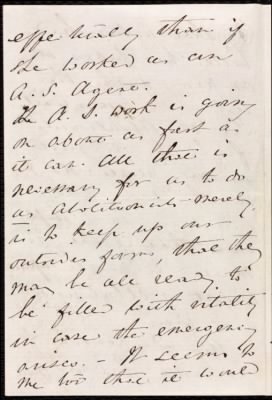 effectually than if
she worked as an
A. S. Agent.
The A. S. work is going
on about as fast as
it can. All that is
necessary for us to do
as Abolitionists merely
is to keep up our
outside forms, that they
may be all ready to
be filled with vitality
in case the emergency
arises. - It seems to
me too that it would